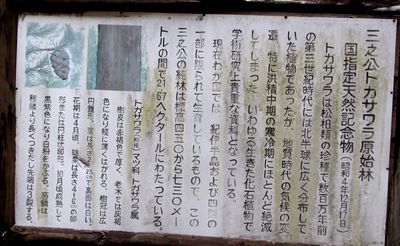 三之公トガサワラ原始林
国指定天然記念物(昭和4年12月17日)
トガサワラは松柏類の珍種で数百万年前
の第三世紀時代には北半球に広く分布して
いた植物であったが、地質時代の気候の変
遷、特に洪積中期の寒冷期にほとんど絶滅
してしまった、いわゆる生きた化石植物で
学術研究上貴重な資料となっている。
現在わが国では、紀伊半島および四国の
一部に限られて生育しているもので、この
三之公の純林は標高四五〇から七三〇メー
トルの間で21.67ヘクタールにわたっている。
トガサワラ(別名) マツ科 トガサワラ属
樹皮は赤褐色で厚く、老木では灰褐
色になり縦に剥れる。樹冠は広
円錐形、葉は長さ2~25㎝で裏面は白い。
花期は4月頃、毬果は長さ4~6㎝の卵
形または円柱状卵形、10月頃成熟して
黒紫色になり白粉をかぶる。
種鱗より長くつきだし先端は3裂する。